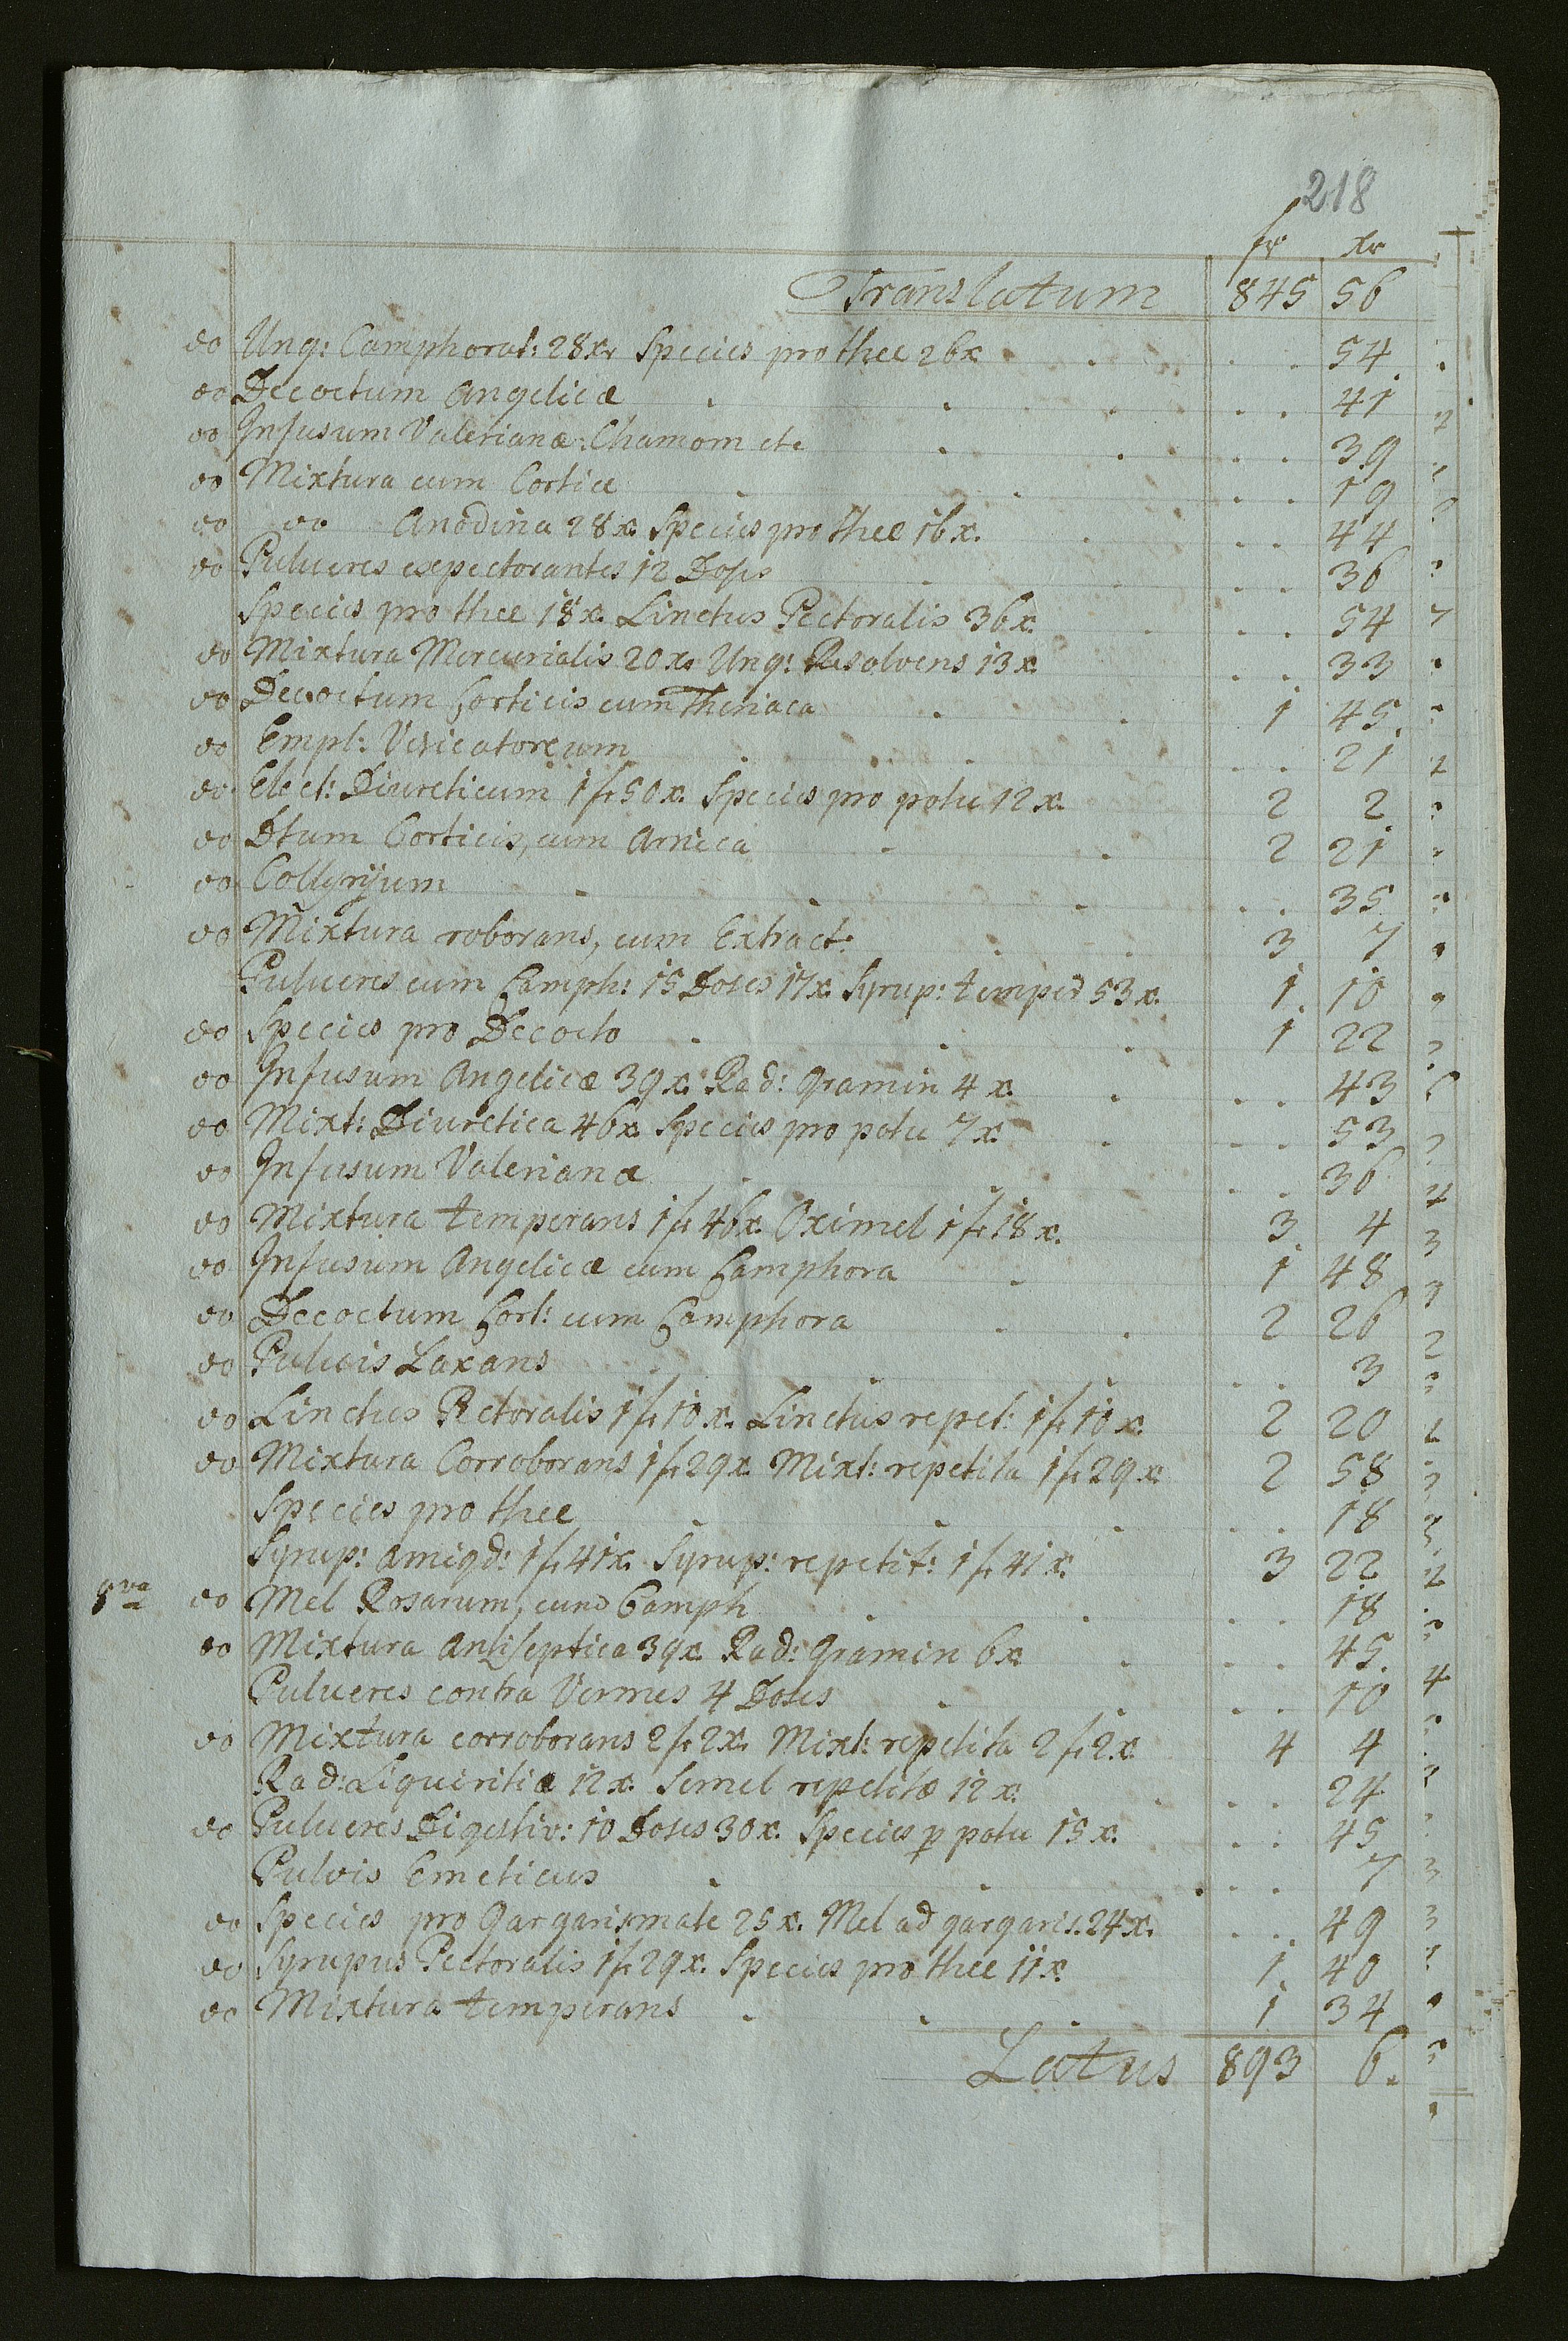 218
fr xr
Translatum 845 56
do Ung: Camphorat: 28xr Species pro thee 26x . . . 54
do Decoctum Angelicæ . . . 41
do Infusum Valerianæ: Chamom etc . . . 39
do Mixtura cum Cortice . . . 19
do do Anodina 28x. Species pro thee 16x. . . . 44
do Pulueres expectorantes 12 Doses . . . 36
Species pro thee 18x. Linctus Pectoralis 36x. . . . 54
do Mixtura Mercurialis 20x. Ung: Resolvens 13x . . . 33
do Decoctum Corticis cum Theriaca . . 1 45.
do Empl: Vesicatoreum . . . 21
do Elect: Diureticum 1fr50x. Species pro potu 12x. 2 2
do Dtum Corticis, cum Arnica . . 2 21
do Collyrÿum . . . 35
do Mixtura roborans, cum Extract: . . 3 7
Pulueres cum Camph: 15 Doses 17x. Syrup: temper 53x. 1. 10
do Species pro Decocto . . . 1 22
do Infusum Angelicæ 39x. Rad: Gramin 4x. . . . 43
do Mixt: Diuretica 46x. Species pro potu 7x. . . . 53
do Infusum Valerianæ . . . 36
do Mixtura temperans 1fr 46x. Oximel 1fr18x. 3 4
do Infusum Angelicæ cum Camphora . 1 48
do Decoctum Cort: cum Camphora . . 2 26
do Puluis Laxans . . . 3
do Linctus Pectoralis 1fr10x. Linctus repet: 1fr10x. 2 20
do Mixtura Corroborans 1fr29x. Mixt: repetita 1fr29x 2 58
Species pro thee . . . 18
Syrup: Amigd: 1fr41x. Syrup: repetit: 1fr41x. 3 22
8va do Mel Rosarum, cum Camph . . . 18
do Mixtura Antiseptica 39x. Rad: Gramin 6x . . . 45.
Pulueres contra Vermes 4 Doses . . . 10
do Mixtura corroborans 2fr2x. Mixt: repetita 2fr2x 4 4
Rad: Liquiritiæ 12x. Semel repetitæ 12x. . . . 24
do Pulueres Digestiv: 10 Doses 30x. Species p potu 15x. . . 45
Pulvis Emeticus . . . 7
do Species pro Gargarismate 25x. Mel ad gargaris. 24x. . . . 49
do Syrupus Pectoralis 1fr29x. Species pro thee 11x. 1. 40
do Mixtura temperans . . . 1 34
Latus 893 6.